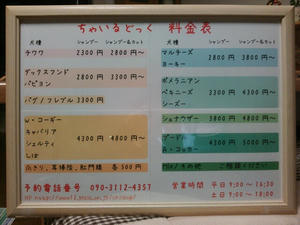 ちゃいるどっく 料金表
犬種 シャンプー シャンプー&カット
チワワ 2300円 2800円〜
ダックスフンド
パピヨン
2800円 3300円〜
パグ/フレブル 3300円
W・コーギー
キャバリア
シェルティ
しば
4300円 4800円〜
爪きり、耳掃除、肛門腺 各500円
犬種 シャンプー シャンプー&カット
マルチーズ
ヨーキー
2800円 3800円〜
ポメラニアン
ペキニーズ
シーズー
3300円 4300円〜
シュナウザー 3800円 4800円〜
プードル
A・コッカー
4300円 5800円〜
ご相談ください
予約電話番号 090-3112-4357
営業時間 平日 9:00〜16:30
土日 9:00〜18:00